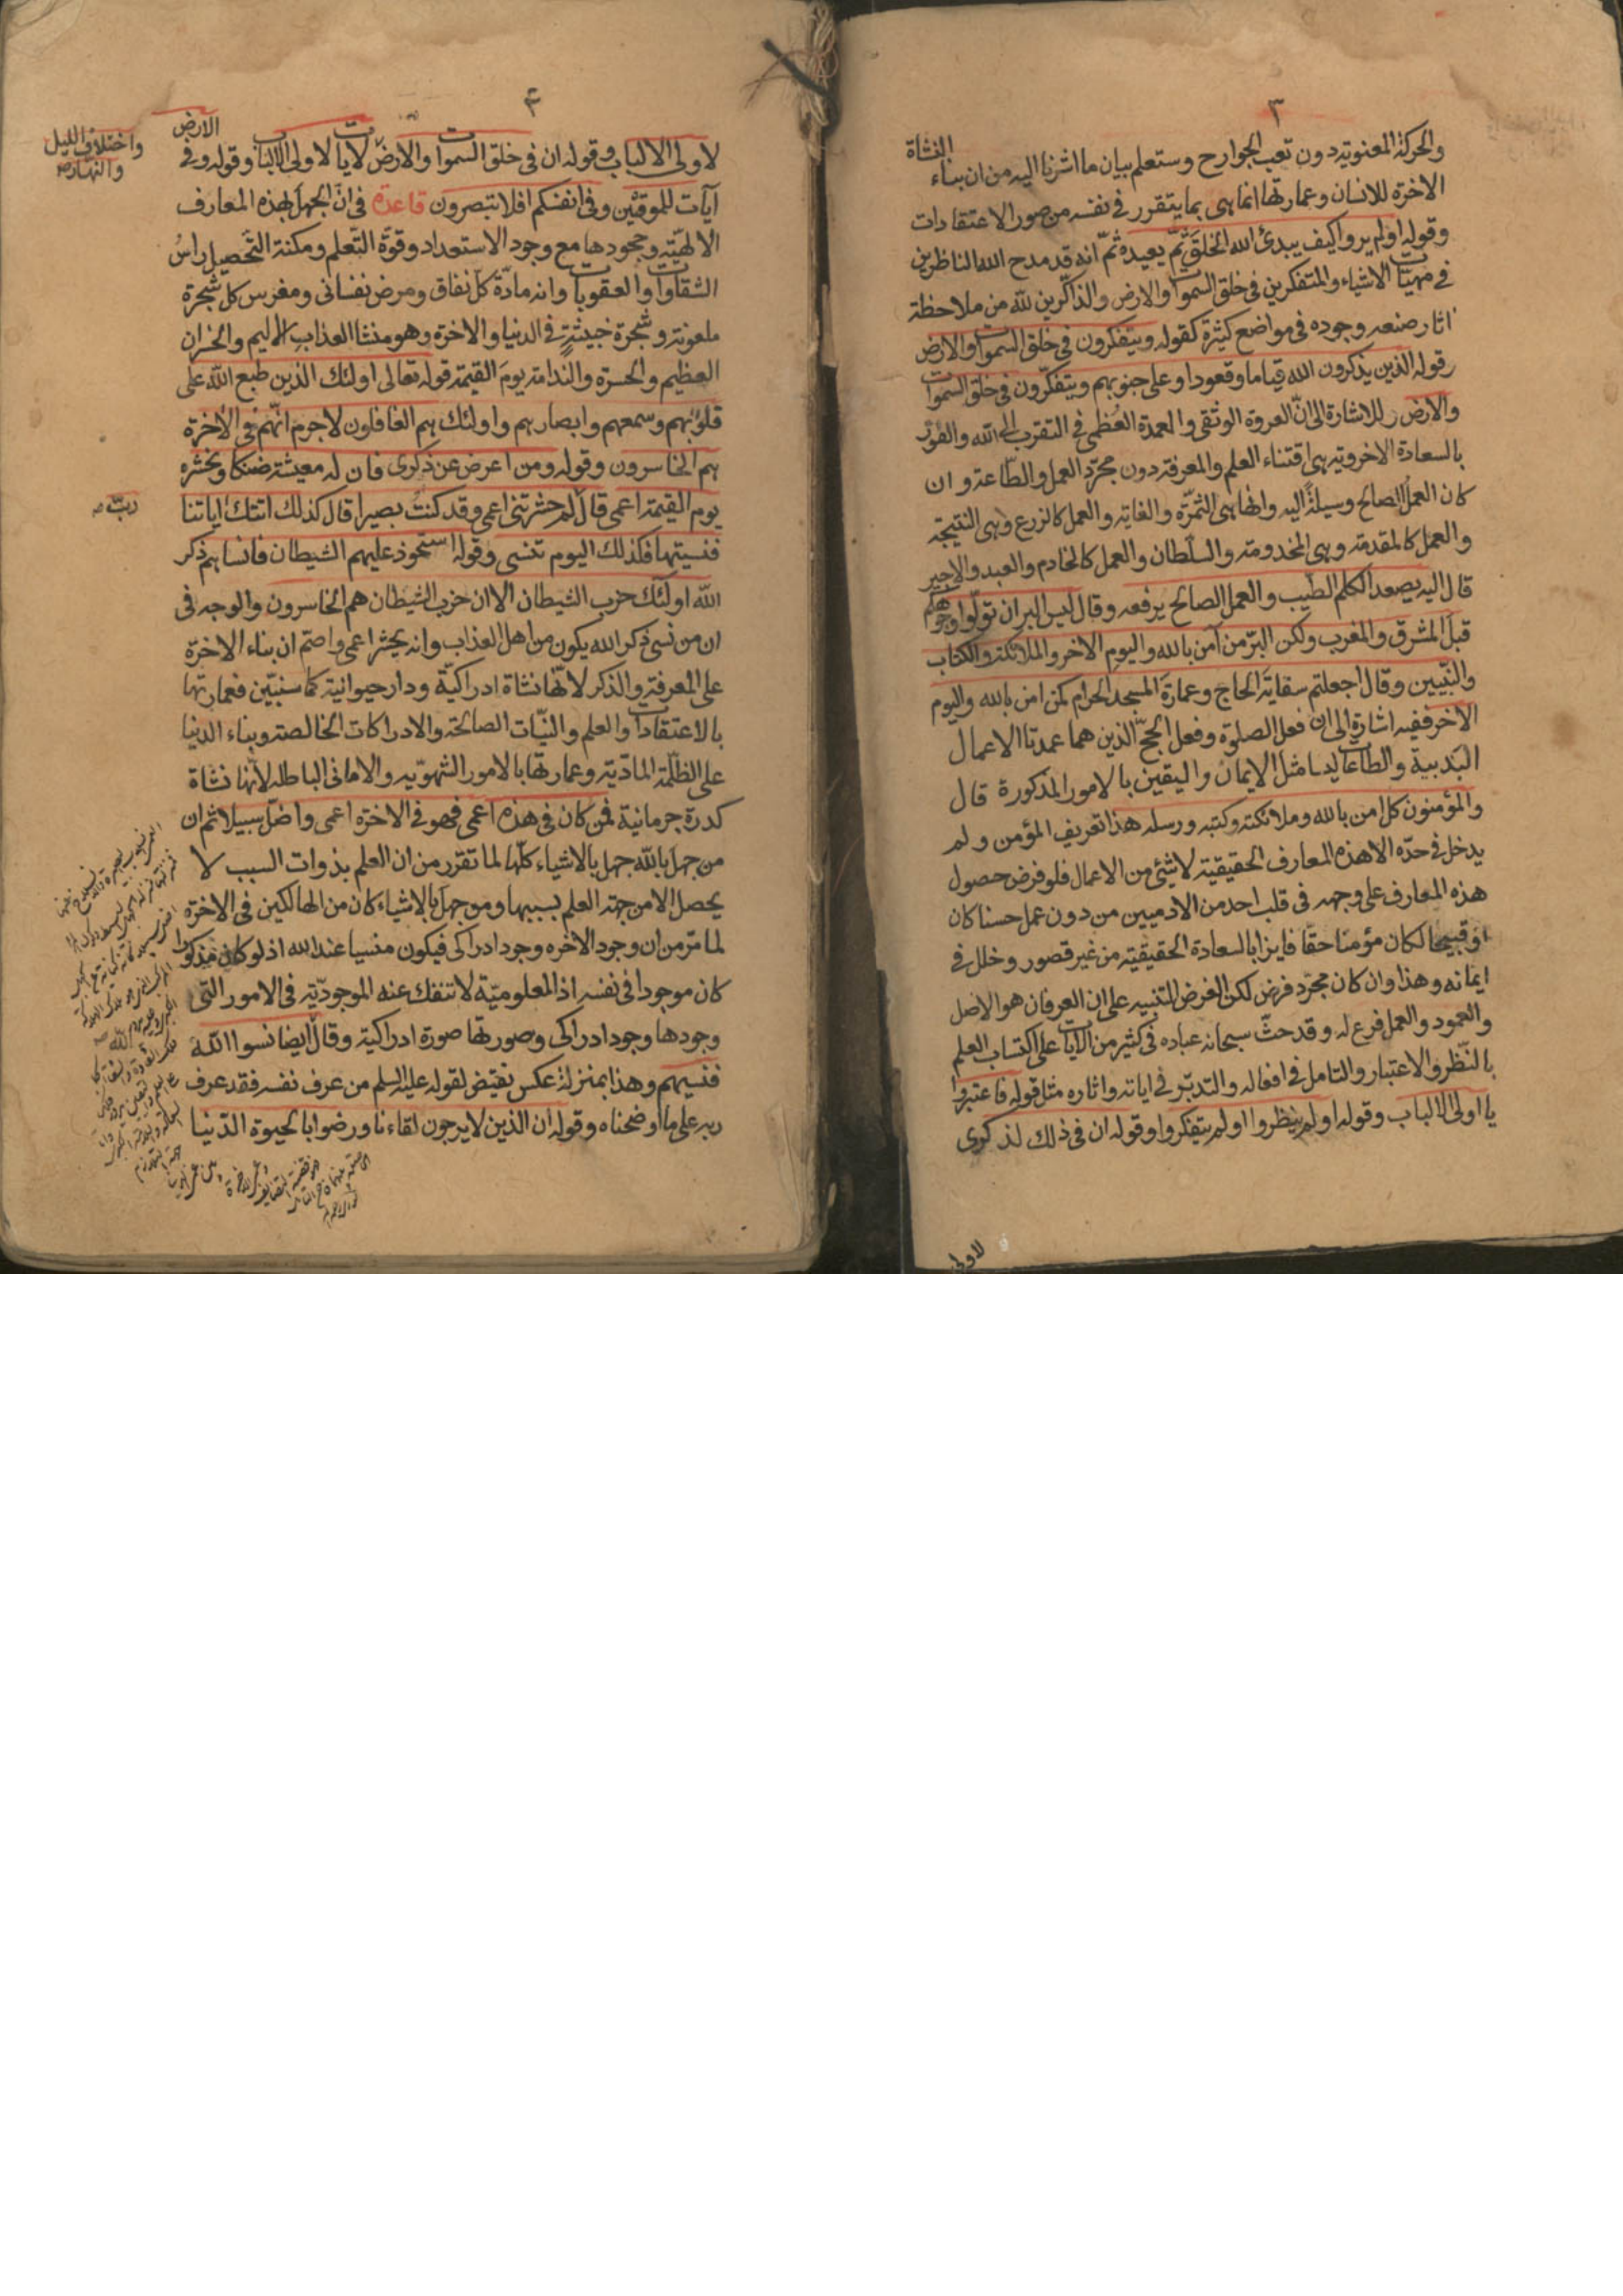 ٣
والحركة المعنوية دون تعب الجوارح وستعلم بيان ما اشرنا اليه من ان بناء النشاة
الاخرة للانسان وعمارتها انما هى بما يتقرر فى نفسه من صور الاعتقادات
وقوله اولم يروا كيف يبدئ الله الخلق ثم يعيده ثمّ انه قد مدح الله الناظرين
فى مهيات الاشياء والمتفكرين فى خلق السموات والارض والذاكرين لله من ملاحظة
اثار صنعه وجوده فى مواضع كثيرة كقوله ويتفكرون فى خلق السموات والارض
وقوله الذين يذكرون الله قياما وقعودا وعلى جنوبهم ويتفكّرون فى خلق السموات
والارض للاشارة الى انّ العروة الوثقى والعمدة العُظمى فى التقرب الى الله والفوز
بالسعادة الاخروية هى اقتناء العلم والمعرفة دون مجرّد العمل والطّاعة وان
كان العملُ الصالح وسيلةً اليه وانها هى الثمرّه والغاية والعمل كالزرع وهى النتيجة
والعمل كالمقدمة وهى المخدومة والسلّطان والعمل كالخادم والعبد والاجير
قال اليه يصعد الكلم الطيّب والعمل الصالح يرفعه وقال ليس البر ان تولّوا وجوهكم
قبل المشرق والمغرب ولكن البرّ من آمن بالله واليوم الاخر والملائكة والكتاب
والنبّيين وقال اجعلتم سقاية الحاج وعمارة المسجد الحرام كمن امن بالله واليوم
الاخر ففيه اشارة الى ان فعل الصلوة وفعل الحجّ الذين هما عمدتا الاعمال
البَدنية والطاعات ليسا مثل الايمان واليقين بالامور المذكورة قال
والمؤمنون كل امن بالله وملائكته وكتبه ورسله هذا تعريف المؤمن ولم
يدخل فى حدّه الا هذه المعارف الحقيقية لا شئ من الاعمال فلو فرض حصول
هذه المعارف على وجهه فى قلب احد من الادميين من دون عمل حسنا كان
او قبيحا لكان مؤمنا حقا فايزا بالسعادة الحقيقية من غير قصور وخلل فى
ايمانه وهذا وان كان مجرّد فرض لكن الغرض التنبيه على ان العرفان هو الاصل
والعمود والعمل فرع له وقد حثّ سبحانه عباده فى كثير من الايات على اكتساب العلم
بالنّظر والاعتبار والتامل فى افعاله والتدبّر فى اياته واثاره مثل قوله فاعتبروا
يا اولى الالباب وقوله اولم ينظروا اولم يتفكروا وقوله ان فى ذلك لذكرى
لاولى
٤
لاولى الالباب وقوله ان فى خلق السموات والارض لايات لاولى الالباب وقوله وفى الارض
واختلاف الليل
والنهار صح
آيات للموقنين وفى انفسكم افلا تبصرون قاعدة فى انّ الجهل بهذه المعارف
الالهيّة وجحودها مع وجود الاستعداد وقوّة التّعلم ومكنة التّحصيل راسُ
الشقاوات والعقوبات وانه مادّة كل نفاق ومرض نفسانى ومغرس كل شجرة
ملعونة وشجرة خبيثةٍ فى الدنيا والاخرة وهو منشا العذاب الاليم والخسران
العظيم والحسرة والندامة يومَ القيمة قوله تعالى اولئك الذين طبع الله على
قلوبهم وسمعهم وابصارهم واولئك هم الغافلون لاجرم انّهم فى الاخرة
هم الخاسرون وقوله ومن اعرض عن ذكرى فان له معيشة ضنكا ونحشره
يوم القيمة اعمى قال لم حشرتنى اعمى وقد كنتُ بصيرا قال كذلك اتتك اياتنا
ربّ صح
فنسيتها فكذلك اليوم تنسى وقوله استحوذ عليهم الشيطان فانساهم ذكر
الله اولئك حزب الشيطان الا ان حزب الشيطان هم الخاسرون والوجه فى
ان من نسى ذكر الله يكون من اهل العذاب وانه يحشر اعمى واصم ان بناء الاخرة
على المعرفة والذكر لانّها نشاة ادراكيّة ودار حيوانية كما سنبيّن فعمارتها
بالاعتقادات والعلم والنيّات الصالحة والادراكات الخالصة وبناء الدنيا
على الظلّمة المادّية وعمارتها بالامور الشهوّيه والامانى الباطله لانّها نشاة
كدرة جرمانية فمن كان فى هذه اعمى فهو فى الاخرة اعمى واضلّ سبيلا ثم ان
من جهل بالله جهل بالاشياء كلّها لما تقرّر من ان العلم بذوات السبب لا
يحصل الا من جهة العلم بسببها ومن جهل بالاشياء كان من الهالكين فى الاخرة
لما مرّ من ان وجود الاخره وجود ادراكى فيكون منسيا عند الله اذ لو كان مذكورا
كان موجودا فى نفسه اذ المعلوميّة لا تنفك عنه الموجودّية فى الامور التى
وجودها وجود ادراكى وصورتها صورة ادراكية وقال ايضا نسوا الله
فنسيهم وهذا بمنزلة عكس نقيض لقوله عليه السلم من عرف نفسه فقد عرف
ربه على ما اوضحناه وقوله ان الذين لا يرجون لقاءنا ورضوا بالحيوة الدّنيا